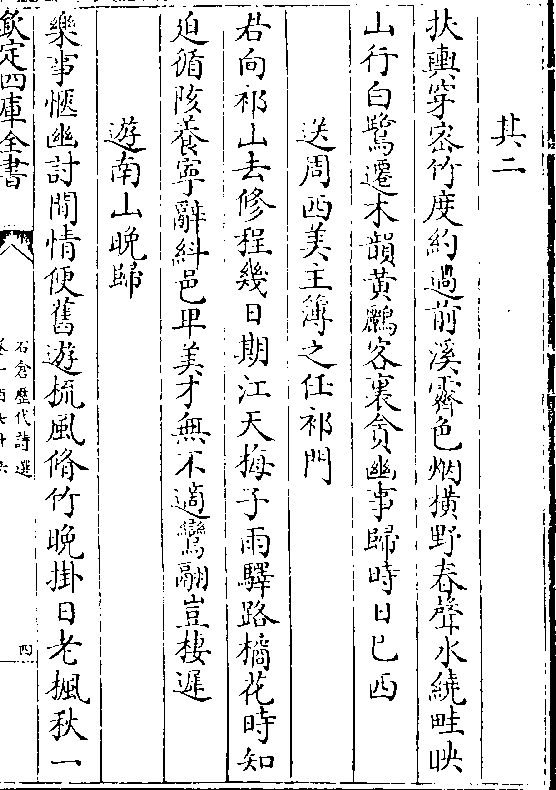 其二
扶輿穿宻竹度約過前溪霽色烟横野春聲水繞畦映
山行白鷺遷木韻黄鸝客裏貪幽事歸時日已西
送周西美主簿之任祁門
君向祁山去修程幾日期江天梅子雨驛路橘花時知
迫循陔養寧辭紏邑卑美才無不適鸞翮豈棲遲
遊南山晚歸
樂事愜幽討閒情便舊遊梳風脩竹晚掛日老楓秋一
欽定四庫全書
石倉歷代詩選
四